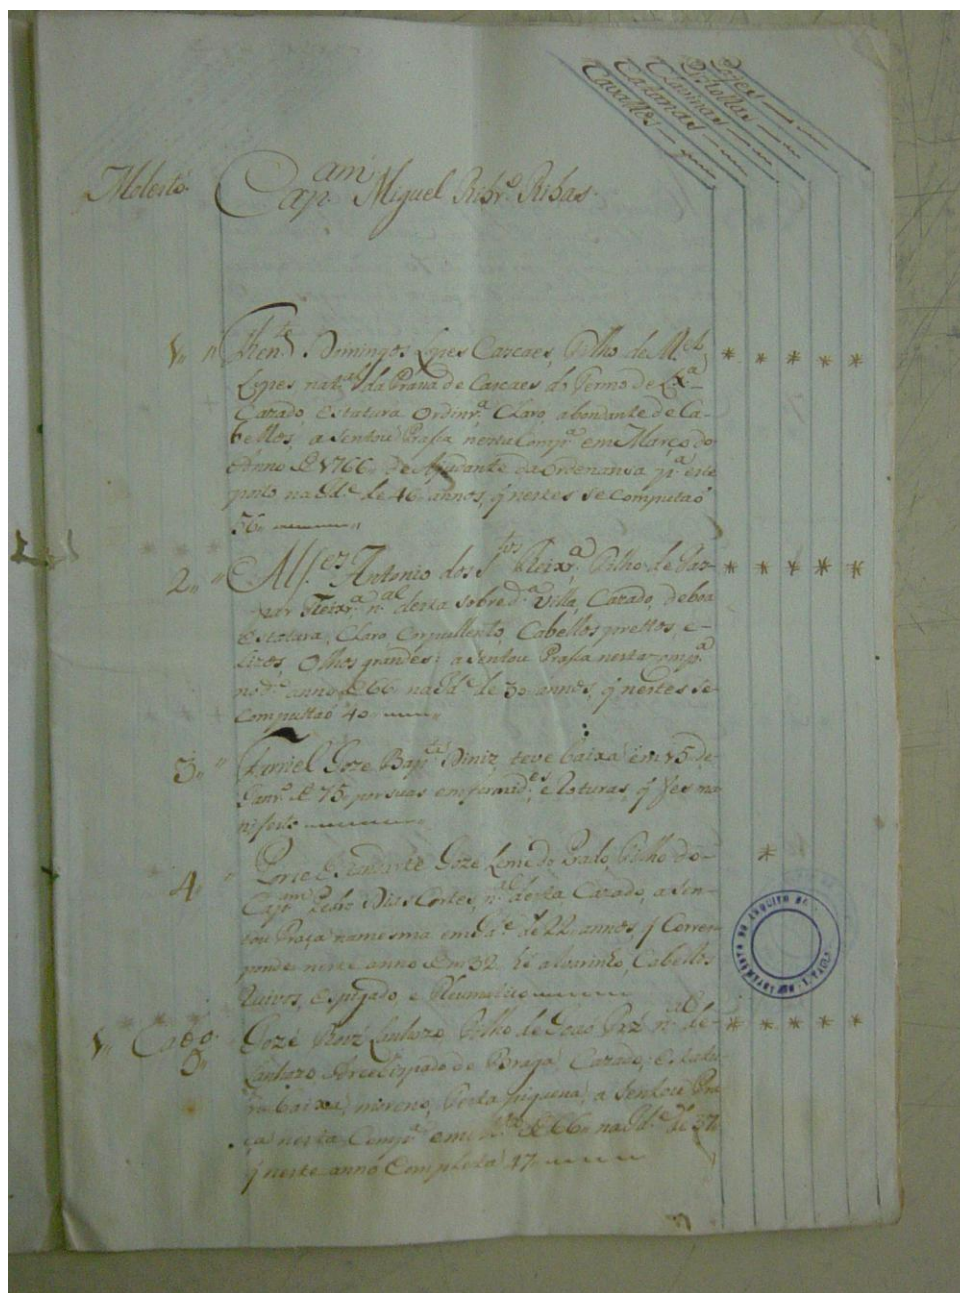 Coldres
Pistollas
Clavinas
Catanas
Cavallos
Molesto. Cap.am Miguel Ribr.o Ribas.
1,, Then.te Domingos Lopes Cascaes, Filho de M.el
Lopes, nat.al da Praya de Cascaes, do Termo de Lx.a
Cazado, Estatura Ordinr.a Claro, abondante de Ca-
bellos, a Sentou Prassa nesta Comp.a em Março do
Anno de 1766,, de Ajudante da Ordenansa p.a este
posto na Id.e de 46 annos, q nestes se computaó
56,,
2,, Alf.es Antonio dos S.tos Teixr.a Filho de Gas-
par Teixr.a n.al desta sobred.a Villa, Cazado, de boa
Estatura, Claro Corpullento, Cabellos prettos, e
Lizos, Olhos grandes; a Sentou Prassa nesta comp.a
no d.o anno de 66 na Id.e de 30 annos, q nestes se
computtaó 40
3,, Furriel Joze Bap.ta Diniz, teve baixa em 15 de
Janr.o de 75, por suas emfermid.es e Roturas, q fes ma
nifesto
4,, Porte Estandarte Joze Leme do Prado, Filho do
Cap.am Pedro Dias Cortes, n.al desta Cazado, a Sen-
tou Praça na mesma em Id.e de 22 annos, q Corres
ponde neste anno Em 32. hé alvarinho, Cabellos
Ruivos, Espigado, e Reumatico
1,, Cabo. 5,, Jozé Roiz Lanhozo, Filho de Joaó Frz n.al de
Lanhozo Arcebispado de Braga, Cazado, Estatu-
ra baixa, moreno, Testa piquena, a Sentou Pra
ça nesta Comp.a em de 66,, na Id.e de 37
q neste anno Completa 47